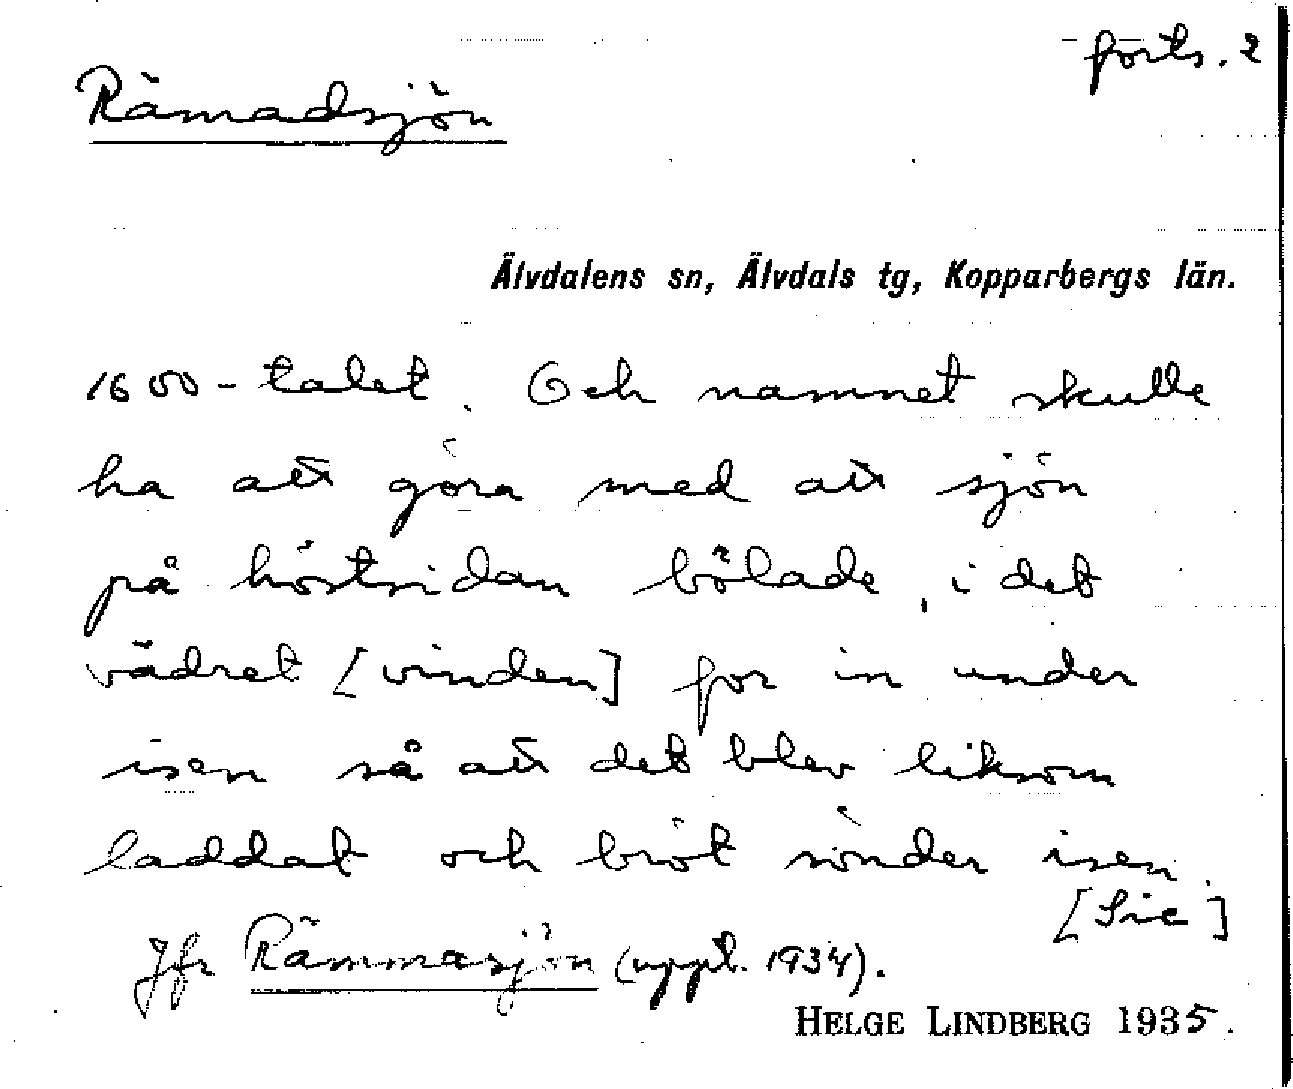 forts. 2
Rämadsjön
Älvdalens sn, Älvdals tg, Kopparbergs län.
1600-talet. Och namnet skulle
ha att göra med att sjön
på höstsidan bölade, i det
vädret [vinden] for in under
isen så att det blev liksom
laddat och bröt sönder isen.
[Sic]
Jfr Rämmasjön (uppt. 1934).
HELGE LINDBERG 1935.